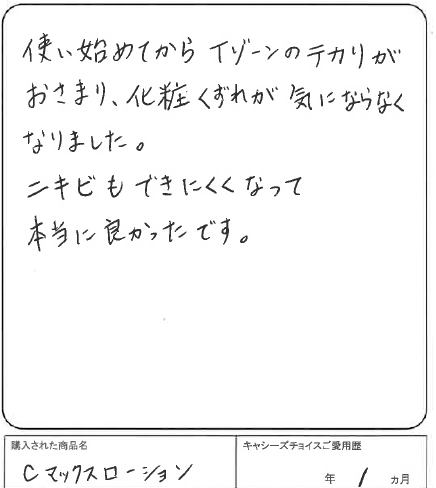 使い始めてから Tゾーンのテカリが
おさまり、化粧くずれが 気にならなく
なりました。
ニキビも できにくくなって
本当に良かったです。
購入された商品名
キャシーズチョイスご愛用歴
Cマックスローション
年 1 ヵ月